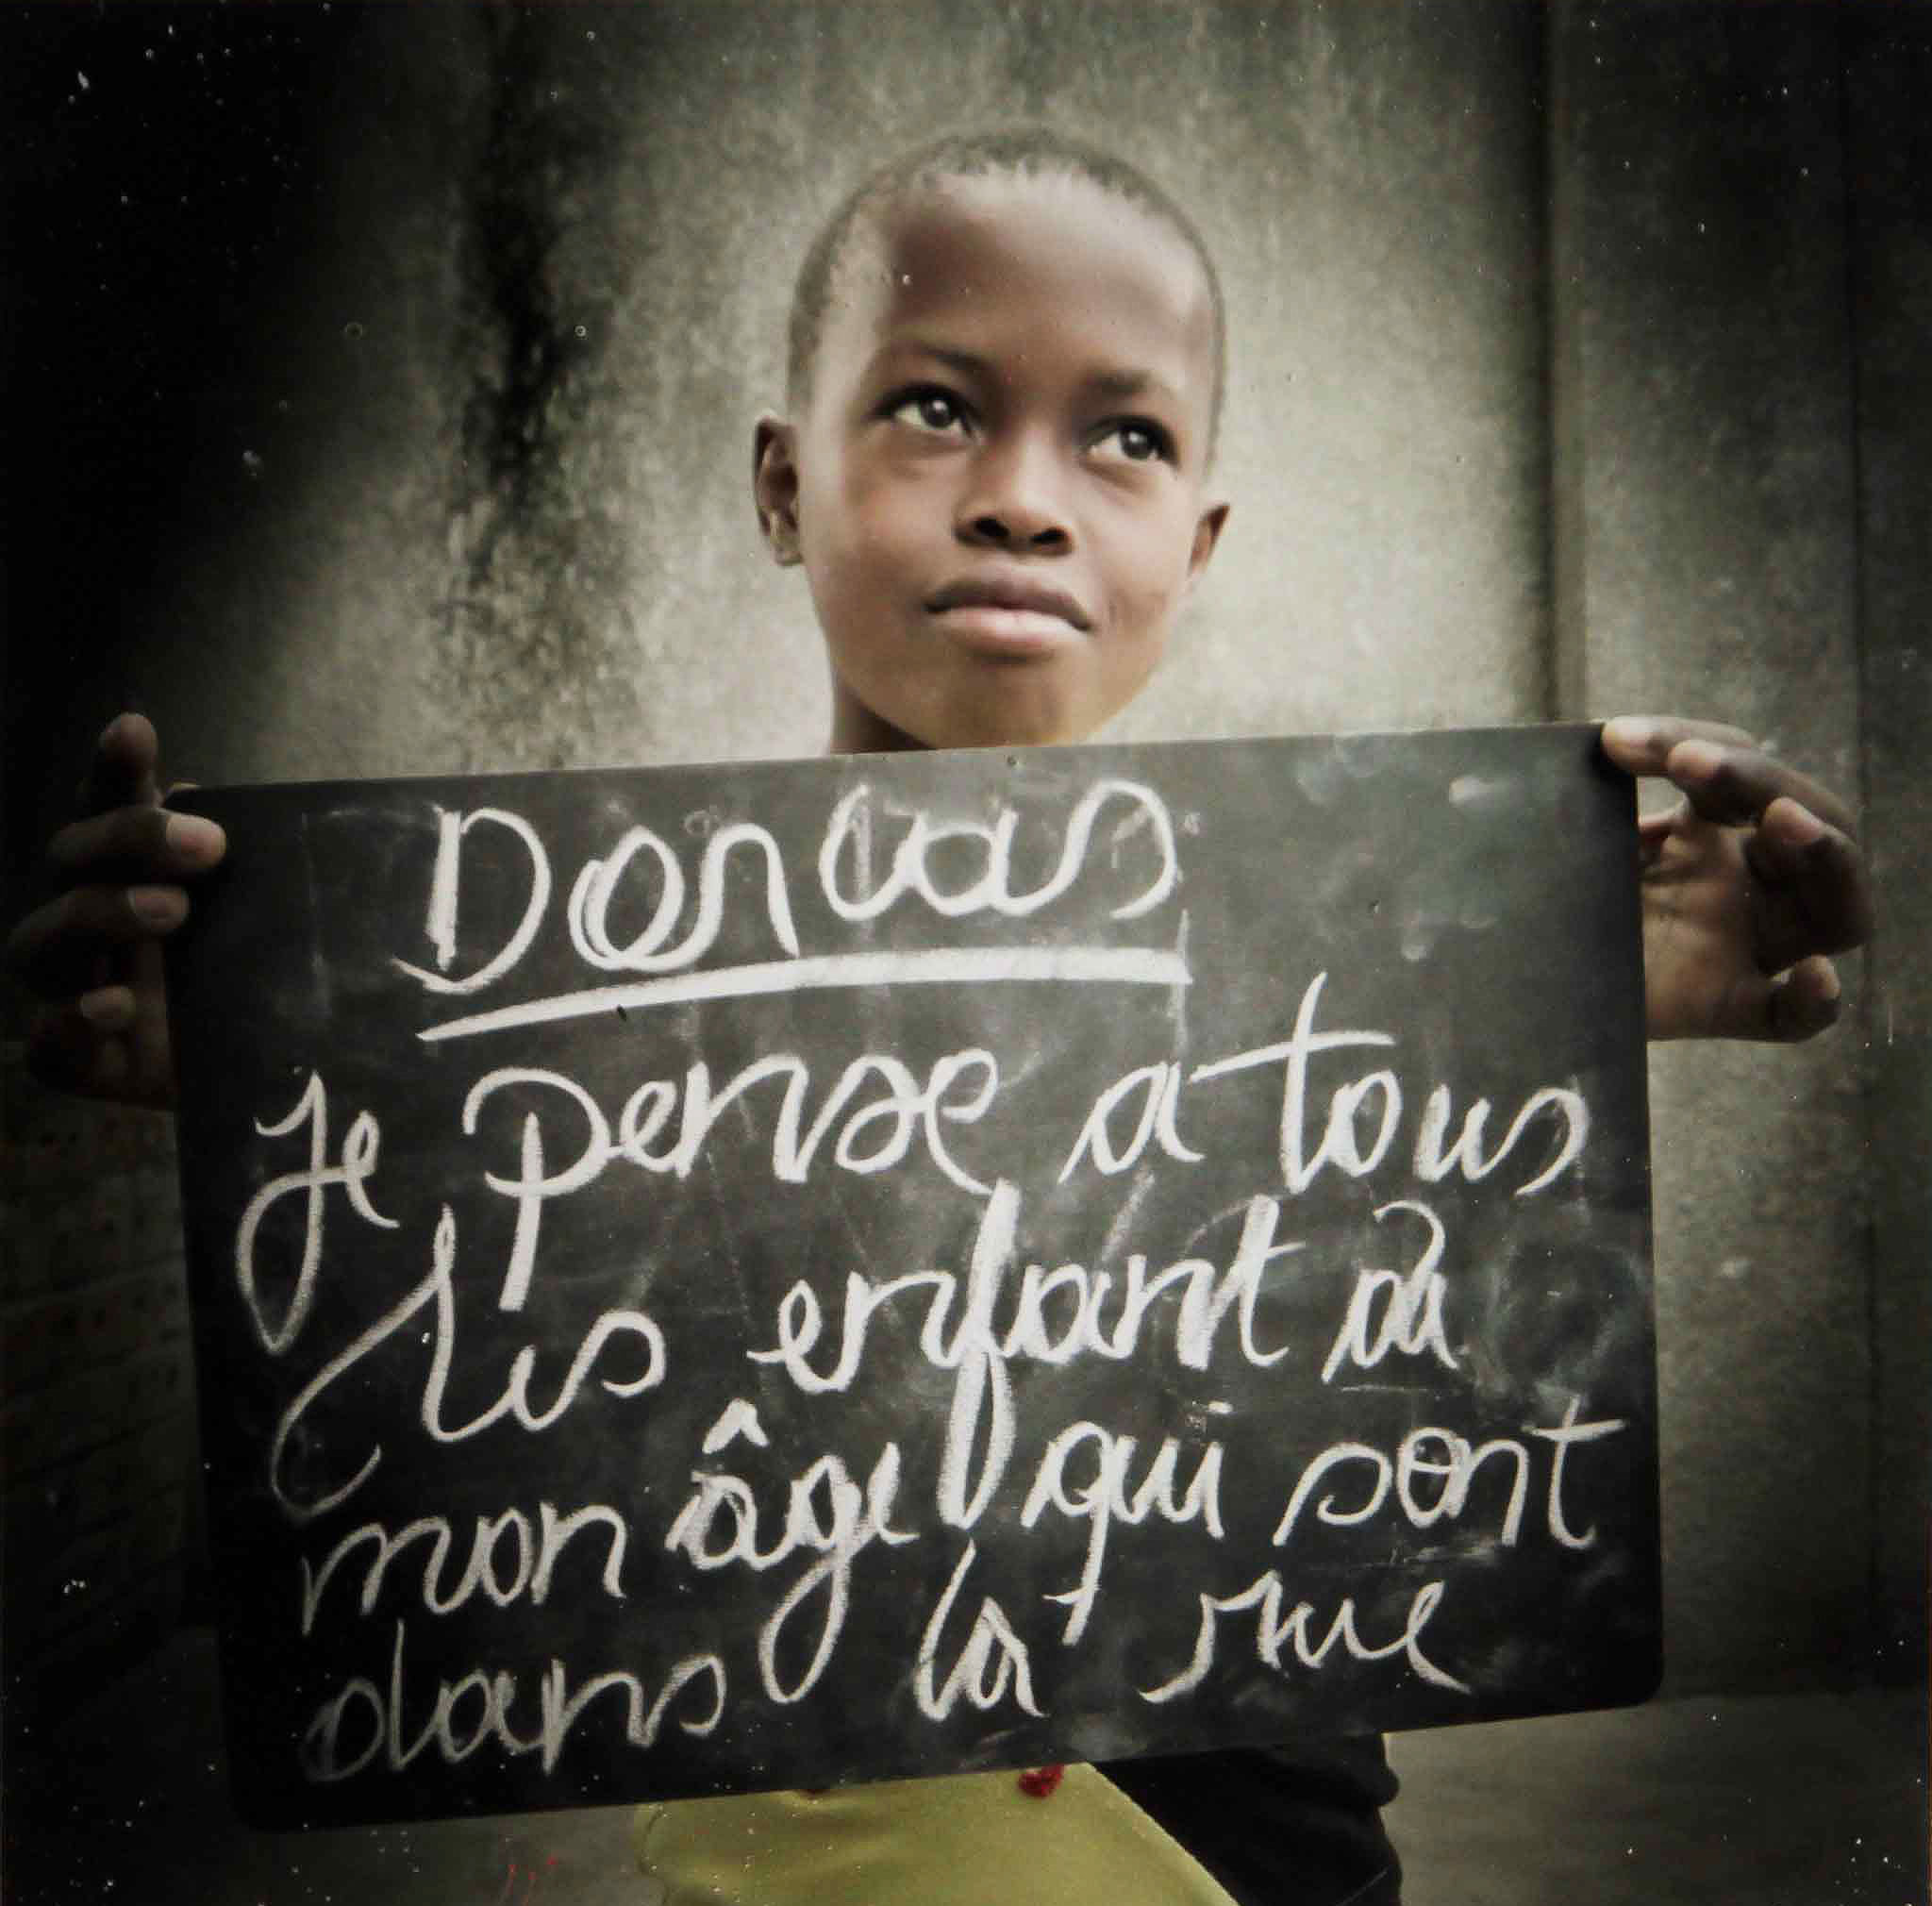 Dorcas
Je pense a tous
les enfant à
mon âge qui sont
dans la rue